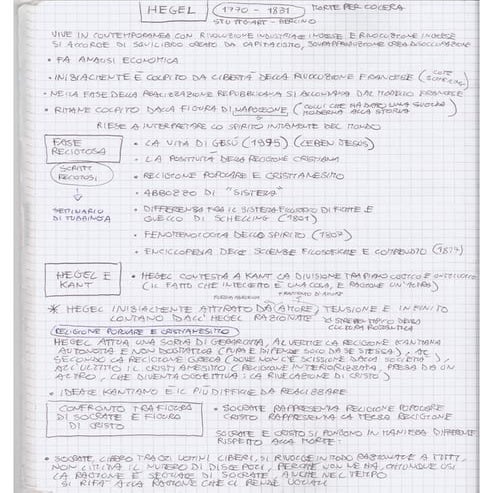 HEGEL (1770 - 1831) MORTE PER COLERA
STOCCARDA - BERLINO
VIVE IN CONTEMPORANEA CON RIVOLUZIONE INDUSTRIALE INGLESE E RIVOLUZIONE
SI ACCORGE DI SQUILIBRIO CREATO DA CAPITALISTO, SOVRAPPRODUZIONE CREA DISOCCUPAZIONE
• FA ANALISI ECONOMICA
• INIZIALMENTE È COLPITO DA LIBERTÀ DELLA RIVOLUZIONE FRANCESE (COME SCHELLING)
• NELLA FASE DELLA REALIZZAZIONE REPUBBLICANA SI ALLONTANA DAL MODELLO FRANCESE
• RIMANE COLPITO DALLA FIGURA DI NAPOLEONE (COLUI CHE HA DATO UNA SVOLTA MODERNA ALLA STORIA)
RIESCE A INTERPRETARE LO SPIRITO DEL MONDO
FASE RELIGIOSA
• LA VITA DI GESÙ (1795) (LEBEN JESUS)
• LA POSITIVITÀ DELLA RELIGIONE CRISTIANA
SCRITTI RELIGIOSI
• RELIGIONE POPOLARE E CRISTIANESIMO
• ABBOZZO DI "SISTEMA"
SEMINARIO DI TUBINGA
• DIFFERENZA TRA IL SISTEMA FILOSOFICO DI FICHTE E QUELLO DI SCHELLING (1801)
• FENOMENOLOGIA DELLO SPIRITO (1807)
• ENCICLOPEDIA DELLE SCIENZE FILOSOFICHE E COMPENDIO (1817)
HEGEL E KANT
• HEGEL CONTESTA A KANT LA DIVISIONE TRA PIANO LOGICO E
(IL FATTO CHE INTELLETTO È UNA COSA, E RAGIONE UN'ALTRA)
* HEGEL INIZIALMENTE ATTIRATO DA (AMORE), TENSIONE E INFINITO
LONTANO DALL'HEGEL RAZIONALE
CULTURA ROMANTICA
RELIGIONE POPOLARE E CRISTIANESIMO
HEGEL ATTUA UNA SORTA DI GERARCHIA, AL VERTICE LA RELIGIONE KANTIANA
AUTONOMA E NON DOGMATICA (PURA E DIPENDE SOLO DA SE STESSA), AL
SECONDO LA RELIGIONE GRECA (DOVE NON C'È SCISSIONE DALLA SOCIETÀ),
ALL'ULTIMO IL CRISTIANESIMO (RELIGIONE INTERIORIZZATA, PRESA DA UN
ALTRO, CHE DIVENTA OGGETTIVA: LA RIVELAZIONE DI CRISTO)
• IDEALE KANTIANO È IL PIÙ DIFFICILE DA REALIZZARE
CONFRONTO TRA FIGURA DI SOCRATE E FIGURA DI CRISTO
• SOCRATE RAPPRESENTA RELIGIONE POPOLARE
CRISTO RAPPRESENTA LA TERZA RELIGIONE
SOCRATE E CRISTO SI PONGONO IN MANIERA DIFFERENTE
RISPETTO ALLA MORTE:
• SOCRATE, LIBERO TRA GLI UOMINI LIBERI, SI RIVOLGE IN MODO RAZIONALE A TUTTI,
NON LIMITA IL NUMERO DI DISCEPOLI, PERCHÉ NON NE HA, CHIUNQUE USI
LA RAGIONE È SEGUACE DI SOCRATE, ANCHE NEL TEMPO
SI RIFÀ ALLA RAGIONE CHE CI RENDE UGUALI